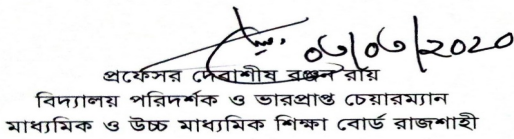 ০৩/০৩/2020
প্রফেসর দেবাশীষ রঞ্জন রায়
বিদ্যালয় পরিদর্শক ও ভারপ্রাপ্ত চেয়ারম্যান
মাধ্যমিক ও উচ্চ মাধ্যমিক শিক্ষা বোর্ড রাজশাহী